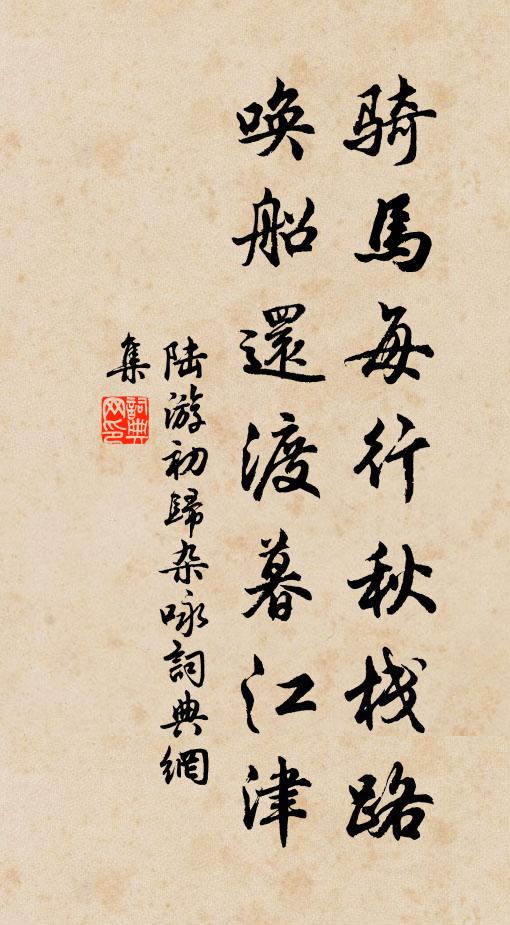 騎馬每行秋棧路
喚船還渡暮江津
陆游初歸杂咏詞典網
集
詞典
网印